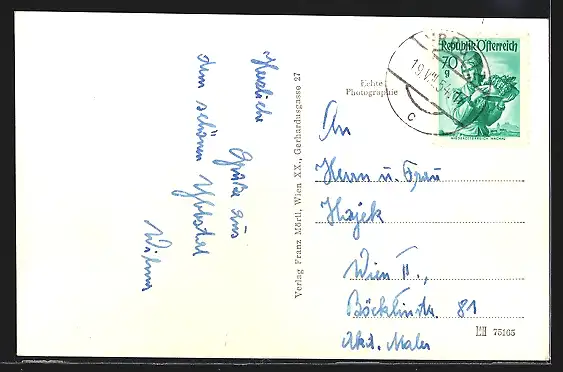 Herzliche
Grüße aus
dem schönen Ybbstal
Verlag Franz Mörtl, Wien XX., Gerhardusgasse 27
Echte
Photographie
Republik Österreich
70
g
NIEDERÖSTERREICH WACHAU
19.VII.54
c
An
Herrn u. Frau
Hajek
Wien II.,
Böcklinstr. 81
Akad. Maler
75165